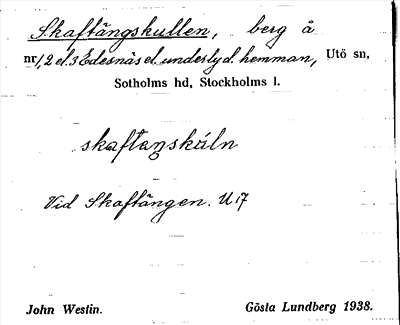 Skaftängskullen, berg å
nr 1,2 el. 3 Edesnäs el. underlyd. hemman, Utö sn,
Sotholms hd, Stockholms l.
skaftaŋskúln
Vid Skaftängen. U i7
John Westin. Gösta Lundberg 1938.